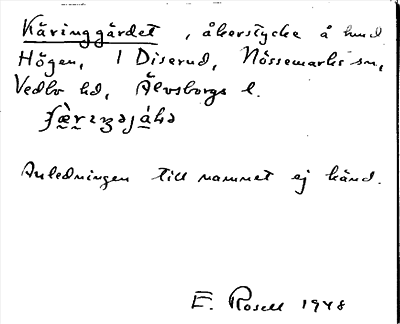 Käringgärdet, åkerstycke å hmd
Högen, 1 Diserud, Nössemarks sn,
Vedbo hd, Älvsborgs l.
Anledningen till namnet ej känd.
E. Rosell 1948